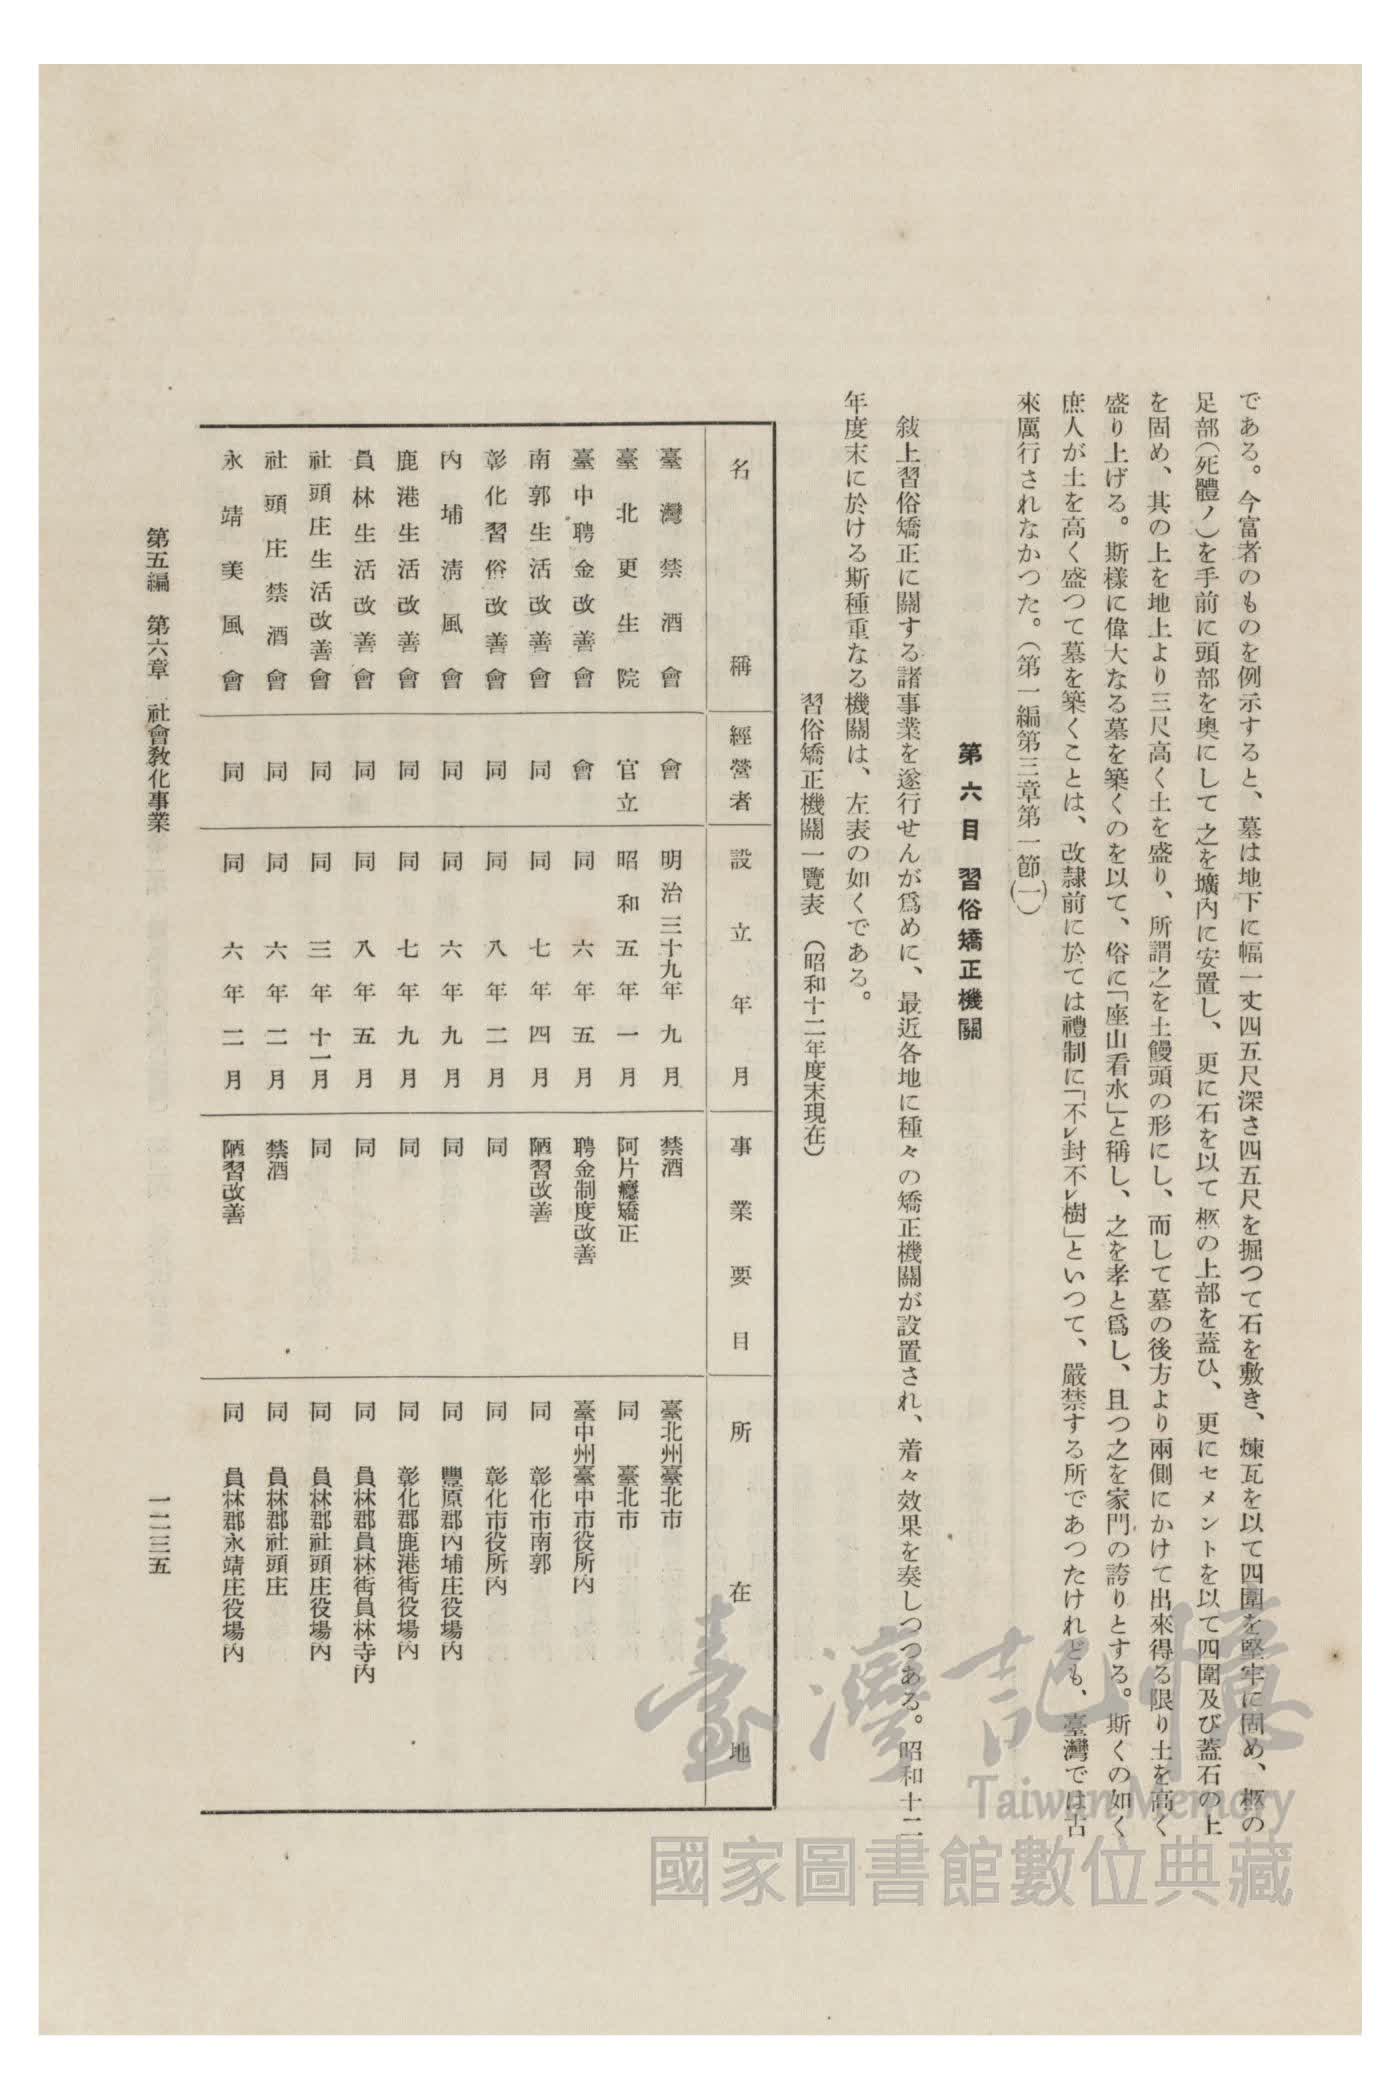 である。今富者のものを例示すると、墓は地下に幅一丈四五尺深さ四五尺を掘つて石を敷き、煉瓦を以て四圍を堅牢に固め、柩の
足部(死體ノ)を手前に頭部を奧にして之を壙內に安置し、更に石を以て柩の上部を蓋ひ、更にセメントを以て四圍及び蓋石の上
を固め、其の上を地上より三尺高く土を盛り、所謂之を土饅頭の形にし、而して墓の後方より兩側にかけて出來得る限り土を高く
盛り上げる。斯樣に偉大なる墓を築くのを以て、俗に「座山看水」と稱し、之を孝と爲し、且つ之を家門の誇りとする。斯くの如く
庶人が土を高く盛つて墓を築くことは、改隸前に於ては禮制に「不レ封不レ樹」といつて、嚴禁する所であつたけれども、臺灣では古
來厲行されなかつた。(第一編第三章第一節(一))
第六目 習俗矯正機關
敍上習俗矯正に關する諸事業を遂行せんが爲めに、最近各地に種々の矯正機關が設置され、着々效果を奏しつつある。昭和十二
年度末に於ける斯種重なる機關は、左表の如くである。
習俗矯正機關一覽表 (昭和十二年度末現在)
名稱 經營者 設立年月 事業要目 所在地
臺灣禁酒會 會 明治三十九年九月 禁酒 臺北州臺北市
臺北更生院 官立 昭和五年一月 阿片癮矯正 同 臺北市
臺中聘金改善會 會 同 六年五月 聘金制度改善 臺中州臺中市役所內
南郭生活改善會 同 同 七年四月 陋習改善 同 彰化市南郭
彰化習俗改善會 同 同 八年二月 同 同 彰化市役所內
內埔淸風會 同 同 六年九月 同 同 豐原郡內埔庄役場內
鹿港生活改善會 同 同 七年九月 同 同 彰化郡鹿港街役場內
員林生活改善會 同 同 八年五月 同 同 員林郡員林街員林寺內
社頭庄生活改善會 同 同 三年十一月 同 同 員林郡社頭庄役場內
社頭庄禁酒會 同 同 六年二月 禁酒 同 員林郡社頭庄
永靖美風會 同 同 六年二月 陋習改善 同 員林郡永靖庄役場內
第五編 第六章 社會敎化事業
一一三五
臺灣記憶
Taiwan Memory
國家圖書館數位典藏